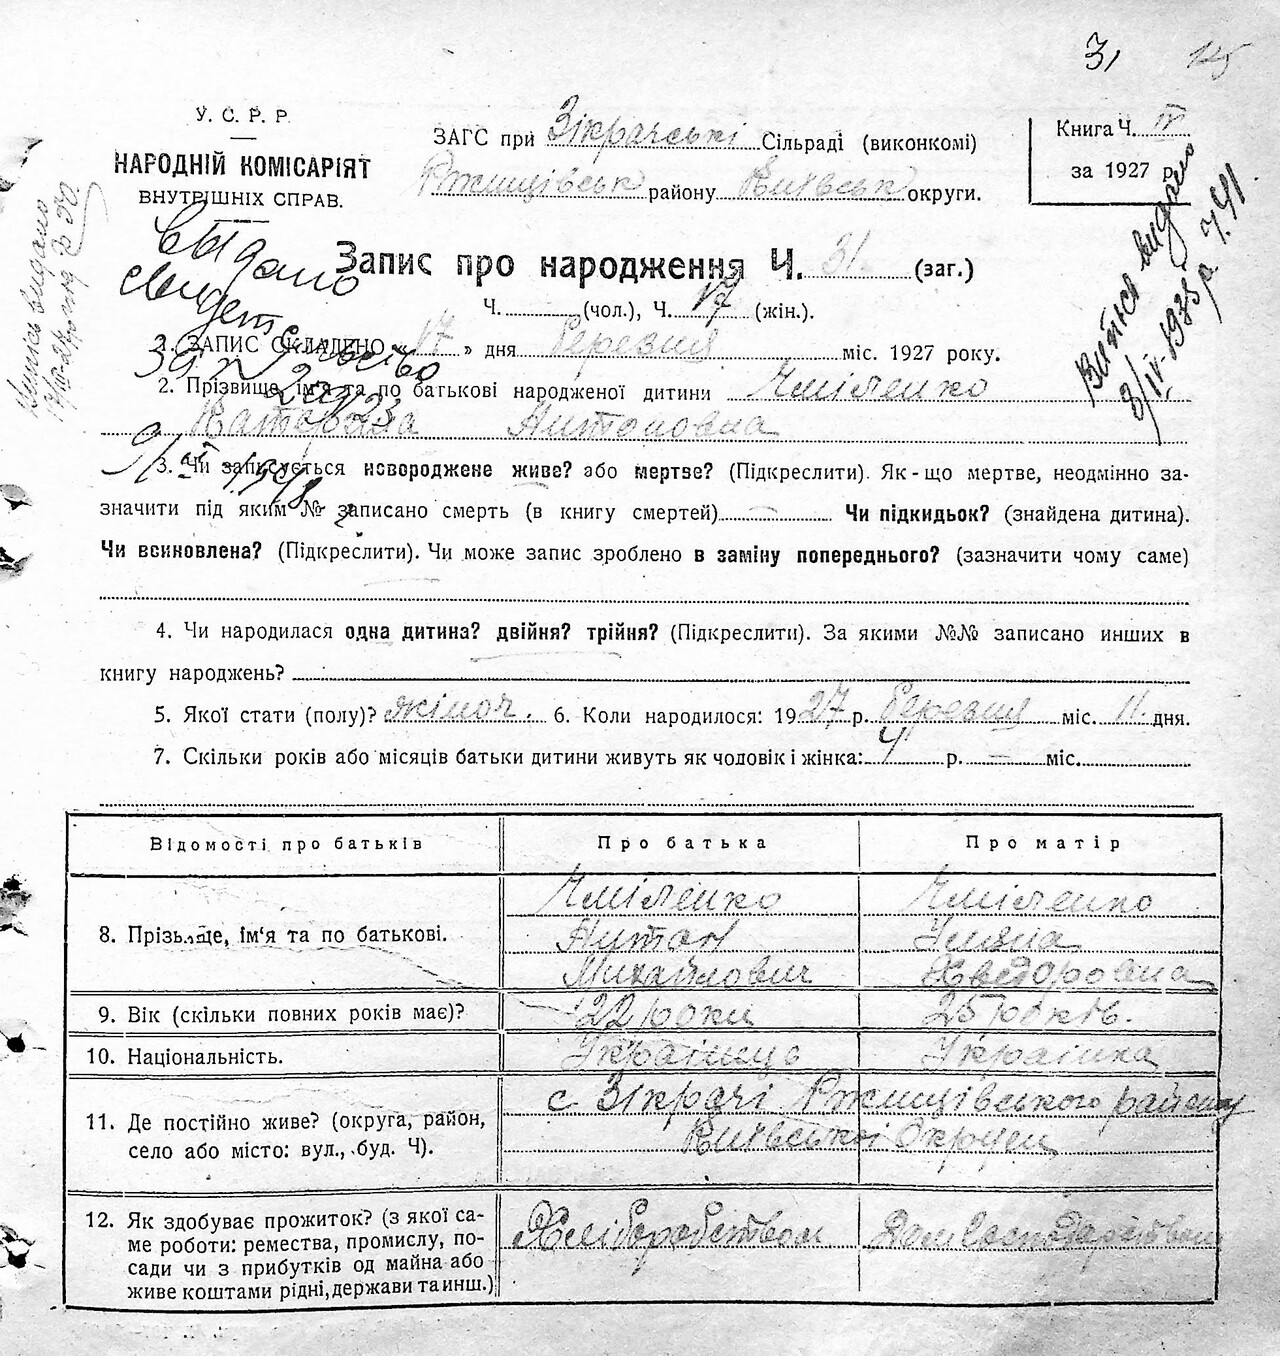 31
У. С. Р. Р.
НАРОДНІЙ КОМІСАРІЯТ
ВНУТРІШНІХ СПРАВ.
ЗАГС при Зікрачські Сільраді (виконкомі)
Ржищівськ району Київськ округи.
Книга Ч. IV
за 1927 р.
Витяг видано
8/IV-1975 р.
Выдано
свидетельство
9/VI 1948
Запис про народження Ч. 31. (заг.)
Ч. (чол.), Ч. 17 (жін.).
1. ЗАПИС СКЛАДЕНО „17" дня березня міс. 1927 року.
2. Прізвище, ім'я та по батькові народженої дитини Хміленко
Катерина Антоновна
3. Чи записується новороджене живе? або мертве? (Підкреслити). Як-що мертве, неодмінно за-
значити під яким № записано смерть (в книгу смертей) — Чи підкидьок? (знайдена дитина).
Чи всиновлена? (Підкреслити). Чи може запис зроблено в заміну попереднього? (зазначити чому саме)
4. Чи народилася одна дитина? двійня? трійня? (Підкреслити). За якими №№ записано инших в
книгу народжень?
5. Якої стати (полу)? жіноч. 6. Коли народилося: 1927 р. березня міс. 11. дня.
7. Скільки років або місяців батьки дитини живуть як чоловік і жінка: 4 р. — міс.
Відомості про батьків Про батька Про матір
8. Прізвище, ім'я та по батькові.
Хміленко Хміленко
Антон Уляна
Михайлович Хведоровна
9. Вік (скільки повних років має)? 22 роки 25 років.
10. Національність. Українець Українка
11. Де постійно живе? (округа, район,
село або місто: вул., буд. Ч).
с Зікрачі Ржищівського району
Київської Округи
12. Як здобуває прожиток? (з якої са-
ме роботи: ремества, промислу, по-
сади чи з прибутків од майна або
живе коштами рідні, держави та инш.)
Хліборобством Домгосподарством